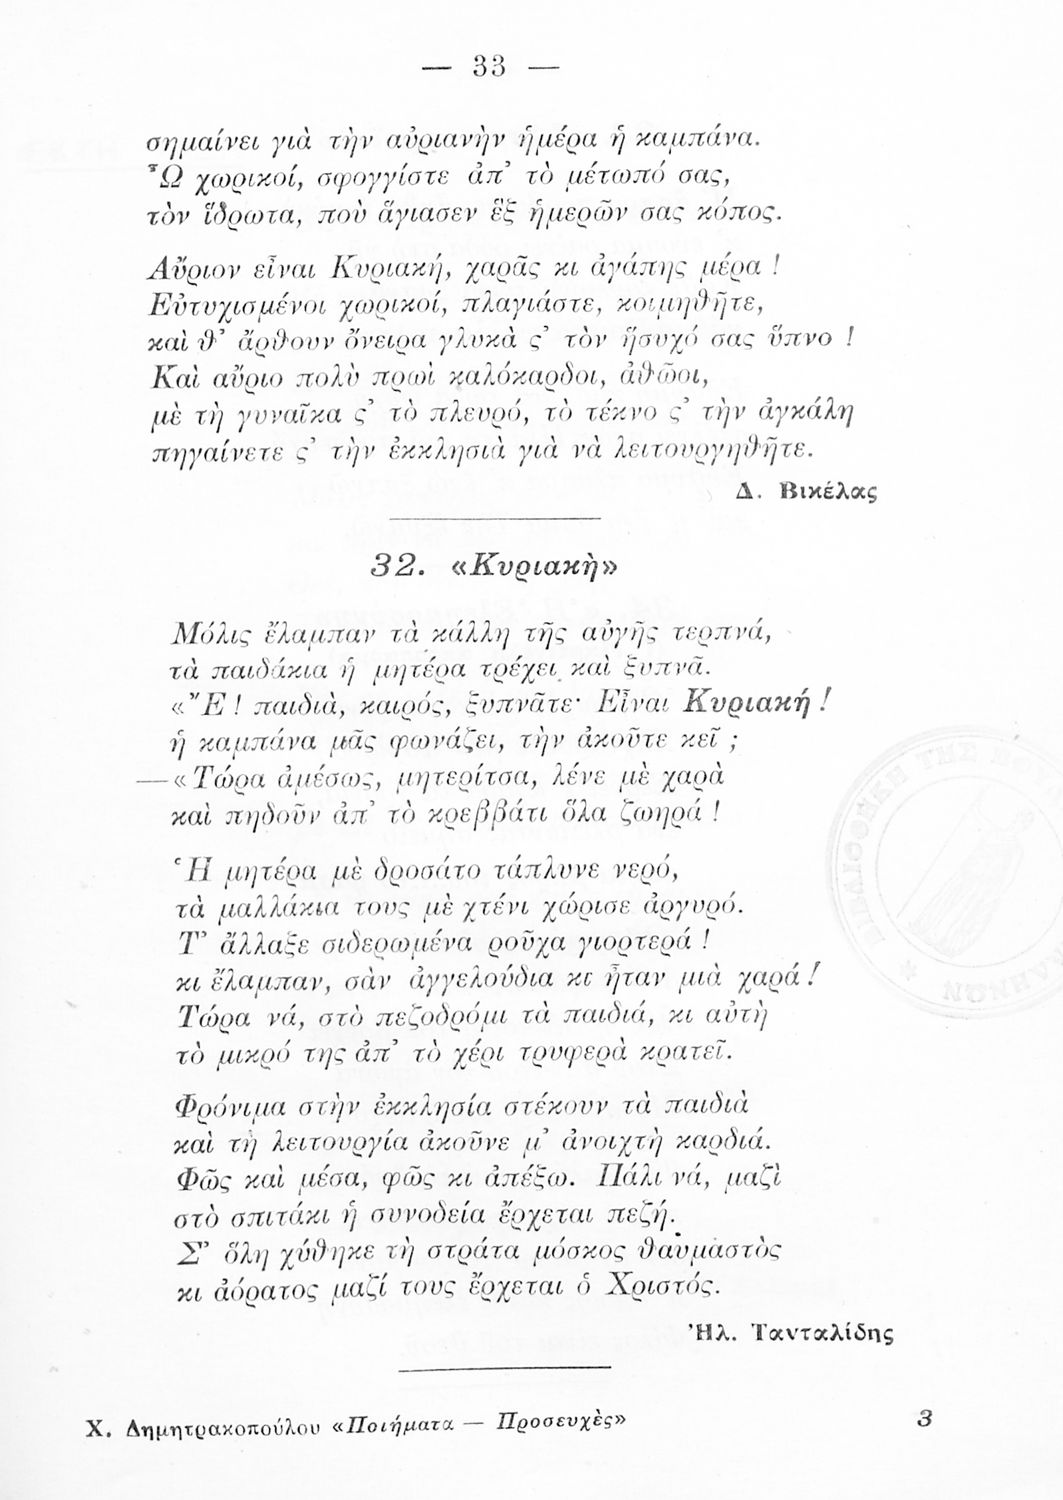 — 33 —
σημαίνει γιὰ τὴν αὐριανὴν ἡμέρα ἡ καμπάνα.
Ὦ χωρικοί, σφογγίστε ἀπ' τὸ μέτωπό σας,
τὸν ἵδρωτα, ποὺ ἅγιασεν ἓξ ἡμερῶν σας κόπος.
Αὔριον εἶναι Κυριακή, χαρᾶς κι ἀγάπης μέρα !
Εὐτυχισμένοι χωρικοί, πλαγιάστε, κοιμηθῆτε,
καὶ θ' ἄρθουν ὄνειρα γλυκὰ ς' τὸν ἥσυχό σας ὕπνο !
Καὶ αὔριο πολὺ πρωῒ καλόκαρδοι, ἀθῶοι,
μὲ τὴ γυναῖκα ς' τὸ πλευρό, τὸ τέκνο ς' τὴν ἀγκάλη
πηγαίνετε ς' τὴν ἐκκλησιὰ γιὰ νὰ λειτουργηθῆτε.
Δ. Βικέλας
32. «Κυριακὴ»
Μόλις ἔλαμπαν τὰ κάλλη τῆς αὐγῆς τερπνά,
τὰ παιδάκια ἡ μητέρα τρέχει καὶ ξυπνᾶ.
«Ἔ ! παιδιὰ, καιρός, ξυπνᾶτε· Εἶναι Κυριακή !
ἡ καμπάνα μᾶς φωνάζει, τὴν ἀκοῦτε κεῖ ;
—«Τώρα ἀμέσως, μητερίτσα, λένε μὲ χαρὰ
καὶ πηδοῦν ἀπ' τὸ κρεββάτι ὅλα ζωηρά !
Ἡ μητέρα μὲ δροσάτο τάπλυνε νερό,
τὰ μαλλάκια τους μὲ χτένι χώρισε ἀργυρό.
Τ' ἄλλαξε σιδερωμένα ροῦχα γιορτερά !
κι ἔλαμπαν, σὰν ἀγγελούδια κι ἦταν μιὰ χαρά !
Τώρα νά, στὸ πεζοδρόμι τὰ παιδιά, κι αὐτὴ
τὸ μικρό της ἀπ' τὸ χέρι τρυφερὰ κρατεῖ.
Φρόνιμα στὴν ἐκκλησία στέκουν τὰ παιδιὰ
καὶ τὴ λειτουργία ἀκοῦνε μ' ἀνοιχτὴ καρδιά.
Φῶς καὶ μέσα, φῶς κι ἀπέξω. Πάλι νά, μαζὶ
στὸ σπιτάκι ἡ συνοδεία ἔρχεται πεζή.
Σ' ὅλη χύθηκε τὴ στράτα μόσκος θαυμαστὸς
κι ἀόρατος μαζί τους ἔρχεται ὁ Χριστός.
Ἠλ. Τανταλίδης
Χ. Δημητρακοπούλου «Ποιήματα — Προσευχὲς»
3